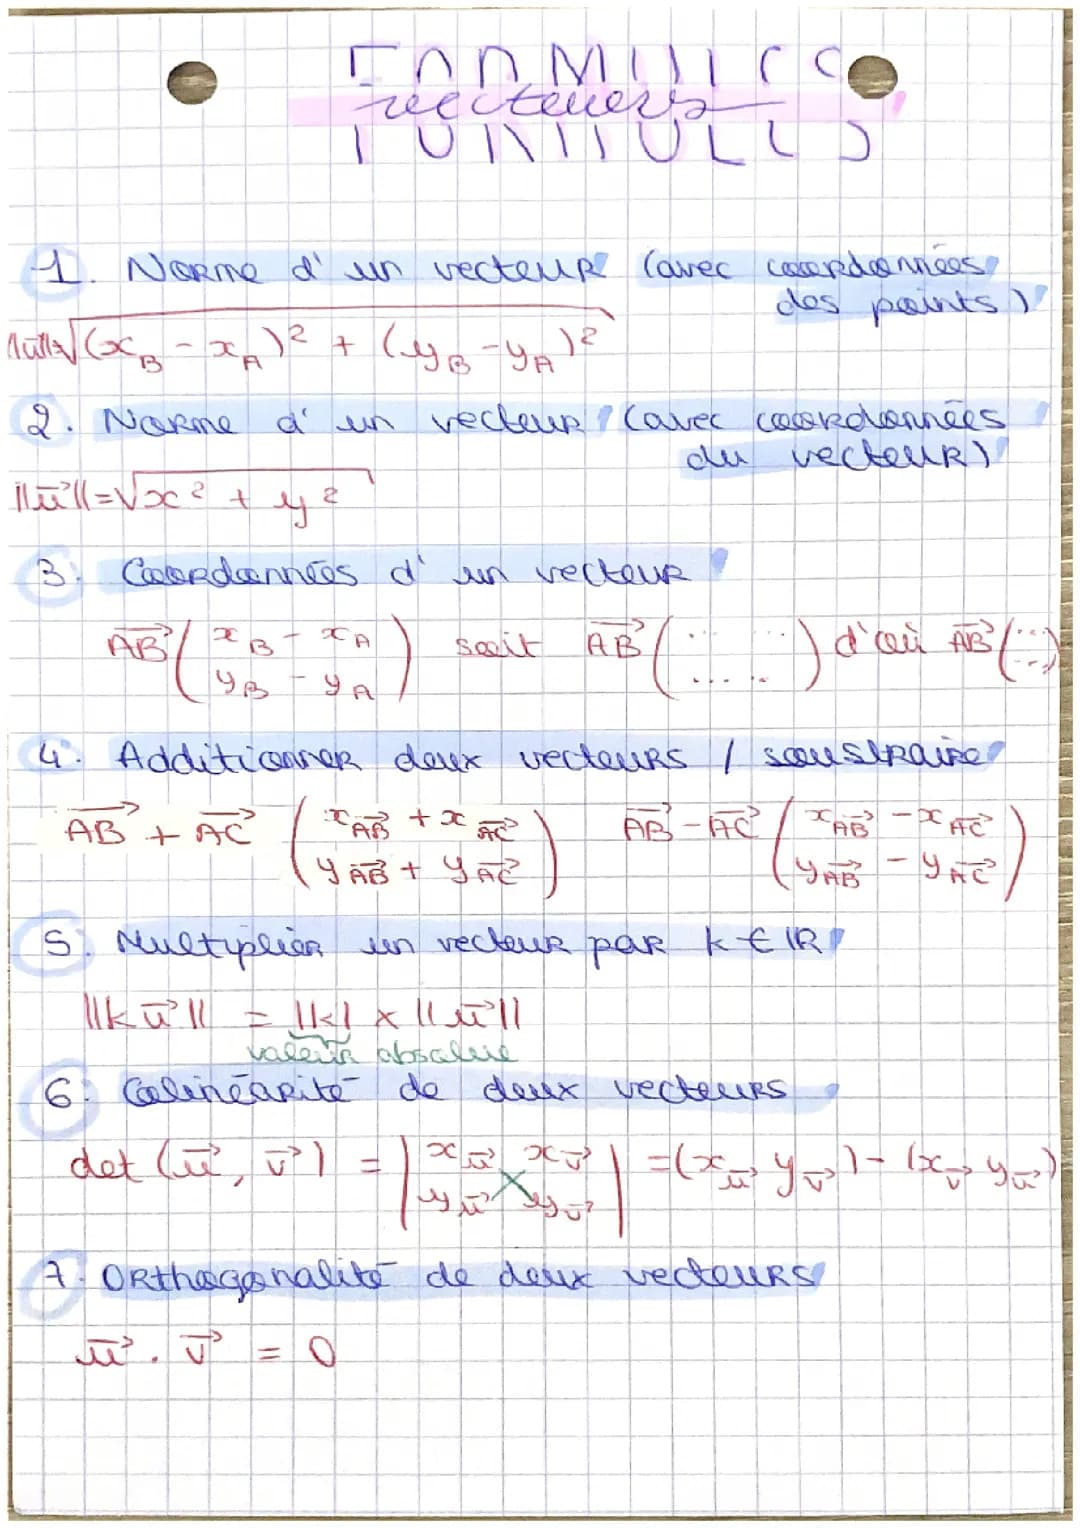 FORMULES
vecteurs
1. Norme d'un vecteur (avec coordonnées
des points)
||u⃗||=√((x_B - x_A)² + (y_B - y_A)²)
2. Norme d'un vecteur (avec coordonnées
du vecteur)
||u⃗||=√(x² + y²)
3. Coordonnées d'un vecteur
AB⃗ (x_B - x_A ; y_B - y_A) soit AB⃗ (... ... ; ... ...) d'où AB⃗ (... ; ...)
4. Additionner deux vecteurs / soustraire
AB⃗ + AC⃗ (x_AB⃗ + x_AC⃗ ; y_AB⃗ + y_AC⃗) AB⃗ - AC⃗ (x_AB⃗ - x_AC⃗ ; y_AB⃗ - y_AC⃗)
5. Multiplier un vecteur par k ∈ ℝ
||k u⃗|| = |k| × ||u⃗||
valeur absolue
6. Colinéarité de deux vecteurs
det (u⃗, v⃗) = |x_u⃗ x_v⃗ ; y_u⃗ y_v⃗| = (x_u⃗ y_v⃗) - (x_v⃗ y_u⃗)
7. Orthogonalité de deux vecteurs
u⃗ . v⃗ = 0